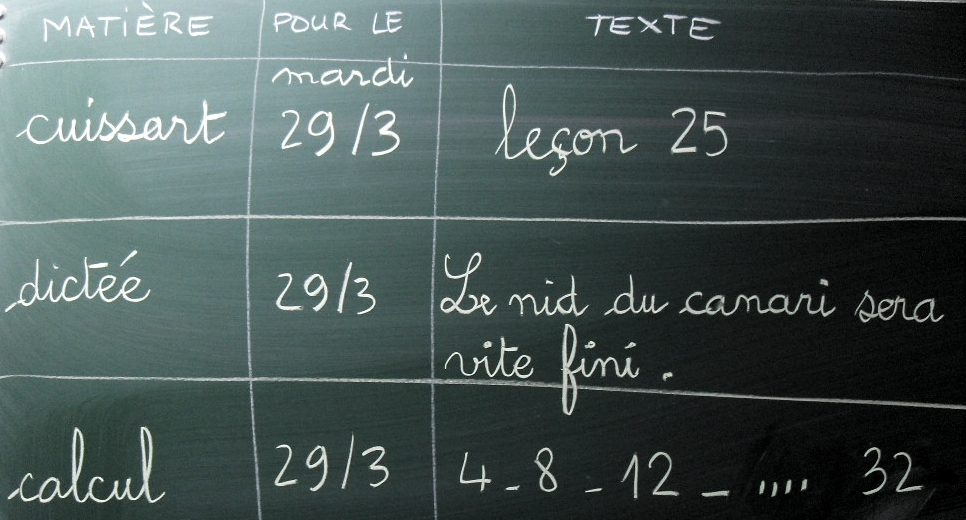 MATIÈRE POUR LE TEXTE
mardi
cuissart 29/3 leçon 25
dictée 29/3 Le nid du canari sera
vite fini.
calcul 29/3 4 - 8 - 12 - .... 32